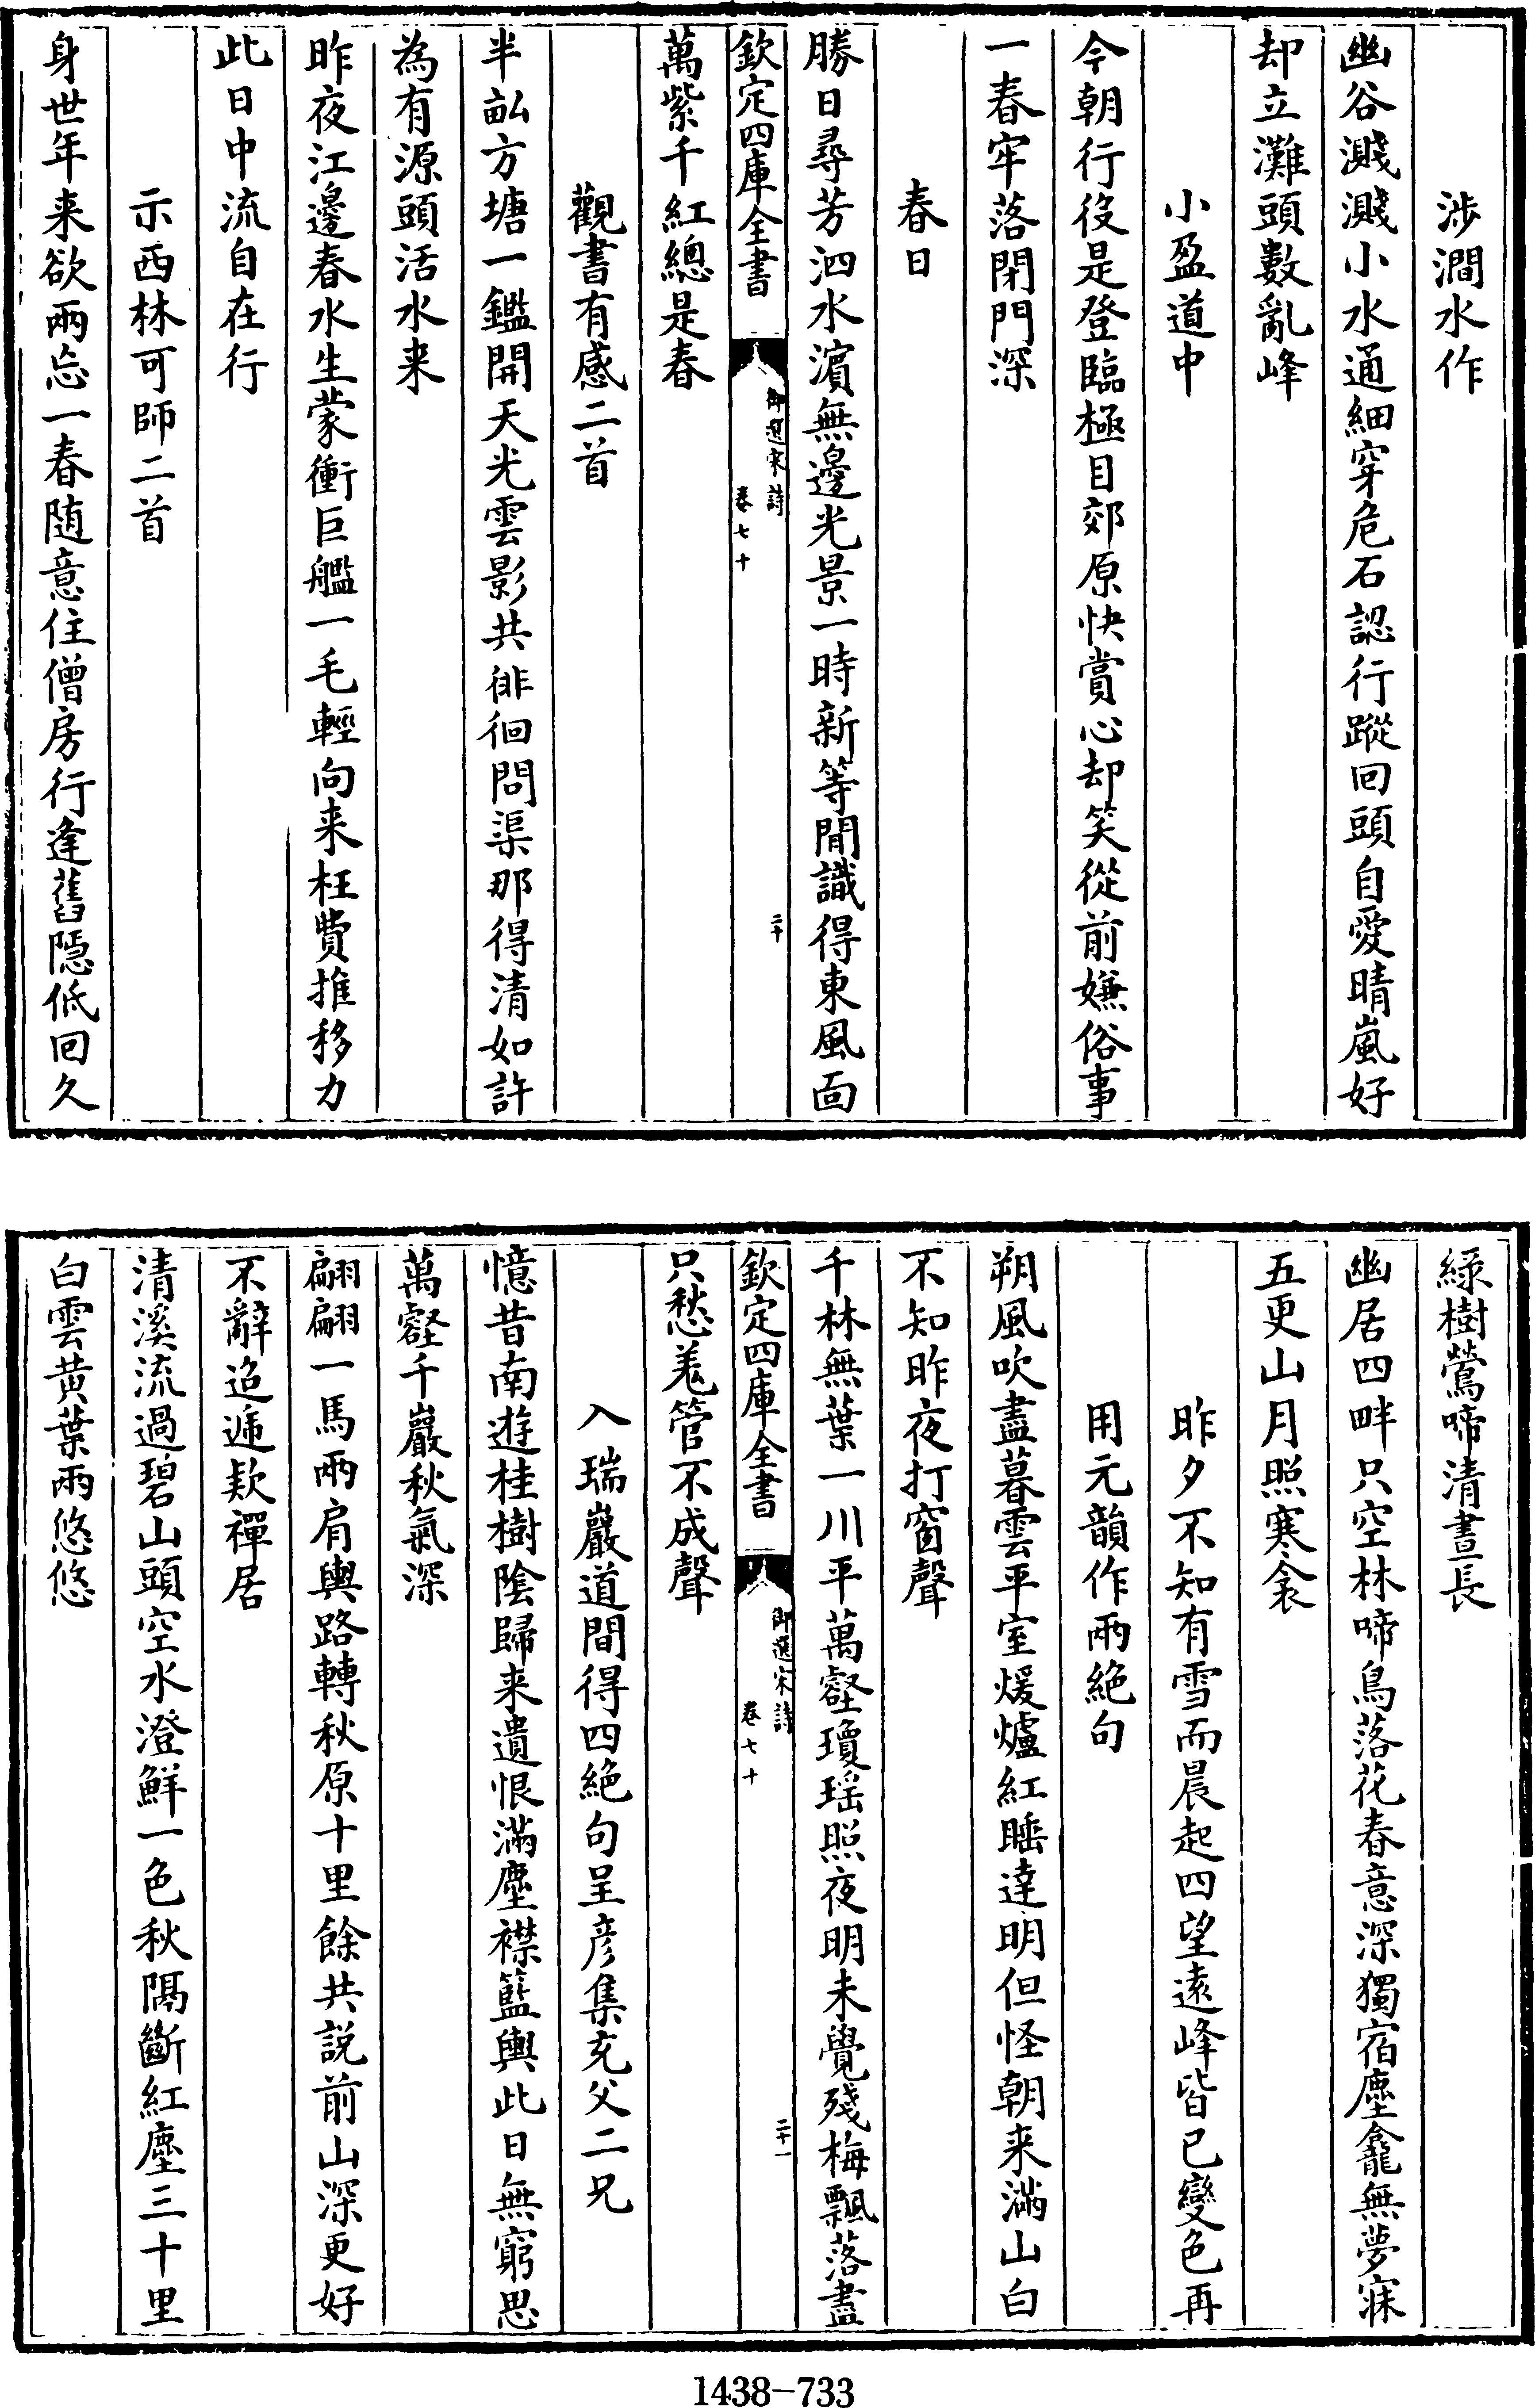 涉澗水作
幽谷濺濺小水通細穿危石認行蹤回頭自愛晴嵐好
却立灘頭數亂峰
小盈道中
今朝行役是登臨極目郊原快賞心却笑從前嫌俗事
一春牢落閉門深
春日
勝日尋芳泗水濵無邊光景一時新等閒識得東風面
欽定四庫全書
御選宋詩
卷七十
二十
萬紫千紅總是春
觀書有感二首
半畝方塘一鑑開天光雲影共徘徊問渠那得清如許
為有源頭活水来
昨夜江邊春水生蒙衝巨艦一毛輕向来枉費推移力
此日中流自在行
示西林可師二首
身世年来欲兩忘一春随意住僧房行逢舊隱低回久
綠樹鶯啼清晝長
幽居四畔只空林啼鳥落花春意深獨宿塵龕無夢寐
五更山月照寒衾
昨夕不知有雪而晨起四望遠峰皆已變色再
用元韻作兩絶句
朔風吹盡暮雲平室煖爐紅睡達明但怪朝来滿山白
不知昨夜打窗聲
千林無葉一川平萬壑瓊瑶照夜明未覺殘梅飄落盡
欽定四庫全書
御選宋詩
卷七十
二十一
只愁羗管不成聲
入瑞巖道間得四絶句呈彦集充父二兄
憶昔南遊桂樹陰歸来遺恨滿塵襟籃輿此日無窮思
萬壑千巖秋氣深
翩翩一馬兩肩輿路轉秋原十里餘共説前山深更好
不辭迢遞欵禪居
清溪流過碧山頭空水澄鮮一色秋隔斷紅塵三十里
白雲黄葉兩悠悠
1438-733